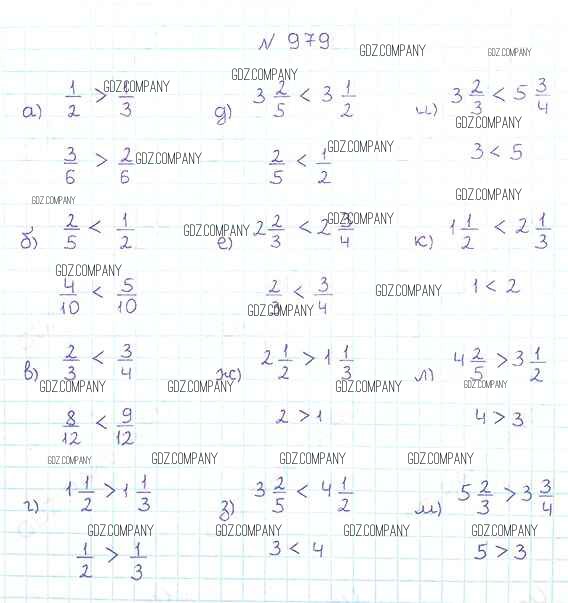 № 979
GDZ.COMPANY
GDZ.COMPANY
GDZ.COMPANY
GDZ.COMPANY
а) 1/2 > 1/3
д) 3 2/5 < 3 1/2
и) 3 2/3 < 5 3/4
GDZ.COMPANY
3/6 > 2/6
GDZ.COMPANY
2/5 < 1/2
GDZ.COMPANY
3 < 5
GDZ.COMPANY
GDZ.COMPANY
б) 2/5 < 1/2
GDZ.COMPANY
е) 2 2/3 < 2 3/4
GDZ.COMPANY
к) 1 1/2 < 2 1/3
GDZ.COMPANY
4/10 < 5/10
2/3 < 3/4
GDZ.COMPANY
GDZ.COMPANY
1 < 2
в) 2/3 < 3/4
ж) 2 1/2 > 1 1/3
л) 4 2/5 > 3 1/2
GDZ.COMPANY
GDZ.COMPANY
GDZ.COMPANY
GDZ.COMPANY
8/12 < 9/12
2 > 1
4 > 3
GDZ.COMPANY
GDZ.COMPANY
GDZ.COMPANY
GDZ.COMPANY
г) 1 1/2 > 1 1/3
з) 3 2/5 < 4 1/2
м) 5 2/3 > 3 3/4
GDZ.COMPANY
GDZ.COMPANY
GDZ.COMPANY
GDZ.COMPANY
1/2 > 1/3
3 < 4
5 > 3